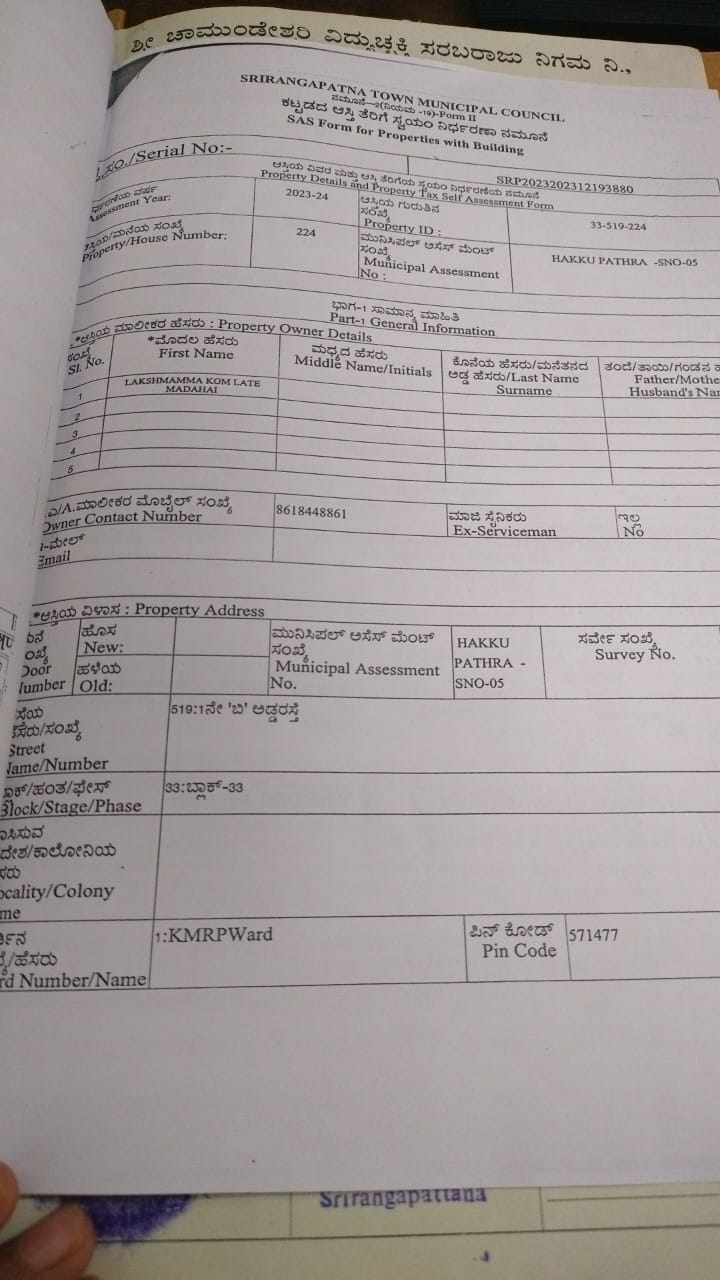 ಶ್ರೀ ಚಾಮುಂಡೇಶ್ವರಿ ವಿದ್ಯುಚ್ಛಕ್ತಿ ಸರಬರಾಜು ನಿಗಮ ನಿ.,
SRIRANGAPATNA TOWN MUNICIPAL COUNCIL
ನಮೂನೆ-2(ನಿಯಮ -19)-Form II
ಕಟ್ಟಡದ ಆಸ್ತಿ ತೆರಿಗೆ ಸ್ವಯಂ ನಿರ್ಧರಣಾ ನಮೂನೆ
SAS Form for Properties with Building
ಸಂ./Serial No:- SRP2023202312193880
ಆಸ್ತಿಯ ವಿವರ ಮತ್ತು ಆಸ್ತಿ ತೆರಿಗೆಯ ಸ್ವಯಂ ನಿರ್ಧರಣೆಯ ನಮೂನೆ
Property Details and Property Tax Self Assessment Form
ವರ್ಷ
Assessment Year: 2023-24
ಆಸ್ತಿಯ ಗುರುತಿನ
ಸಂಖ್ಯೆ
Property ID : 33-519-224
ಆಸ್ತಿಯ/ಮನೆಯ ಸಂಖ್ಯೆ
Property/House Number: 224
ಮುನಿಸಿಪಲ್ ಅಸೆಸ್ ಮೆಂಟ್
ಸಂಖ್ಯೆ
Municipal Assessment
No : HAKKU PATHRA -SNO-05
ಭಾಗ-1 ಸಾಮಾನ್ಯ ಮಾಹಿತಿ
Part-1 General Information
*ಆಸ್ತಿಯ ಮಾಲೀಕರ ಹೆಸರು : Property Owner Details
ಸಂಖ್ಯೆ
Sl. No.
*ಮೊದಲ ಹೆಸರು
First Name
ಮಧ್ಯದ ಹೆಸರು
Middle Name/Initials
ಕೊನೆಯ ಹೆಸರು/ಮನೆತನದ
ಅಡ್ಡ ಹೆಸರು/Last Name
Surname
ತಂದೆ/ತಾಯಿ/ಗಂಡನ
Father/Mothe
Husband's Na
1 LAKSHMAMMA KOM LATE
MADAHAI
2
3
4
5
/A.ಮಾಲೀಕರ ಮೊಬೈಲ್ ಸಂಖ್ಯೆ
Owner Contact Number 8618448861
ಮಾಜಿ ಸೈನಿಕರು
Ex-Serviceman
ಇಲ್ಲ
No
-ಮೇಲ್
Email
*ಆಸ್ತಿಯ ವಿಳಾಸ : Property Address
Door
Number
ಹೊಸ
New:
ಹಳೆಯ
Old:
ಮುನಿಸಿಪಲ್ ಅಸೆಸ್ ಮೆಂಟ್
ಸಂಖ್ಯೆ
Municipal Assessment
No.
HAKKU
PATHRA -
SNO-05
ಸರ್ವೇ ಸಂಖ್ಯೆ
Survey No.
ಹೆಸರು/ಸಂಖ್ಯೆ
Street
Name/Number
519:1ನೇ 'ಬಿ' ಅಡ್ಡರಸ್ತೆ
ಬ್ಲಾಕ್/ಹಂತ/ಫೇಸ್
Block/Stage/Phase 33:ಬ್ಲಾಕ್-33
ಾಸಿಸುವ
ದೇಶ/ಕಾಲೋನಿಯ
ಸರು
ocality/Colony
me
ಸಂಖ್ಯೆ/ಹೆಸರು
rd Number/Name
1:KMRPWard
ಪಿನ್ ಕೋಡ್
Pin Code
571477
Srirangapattana